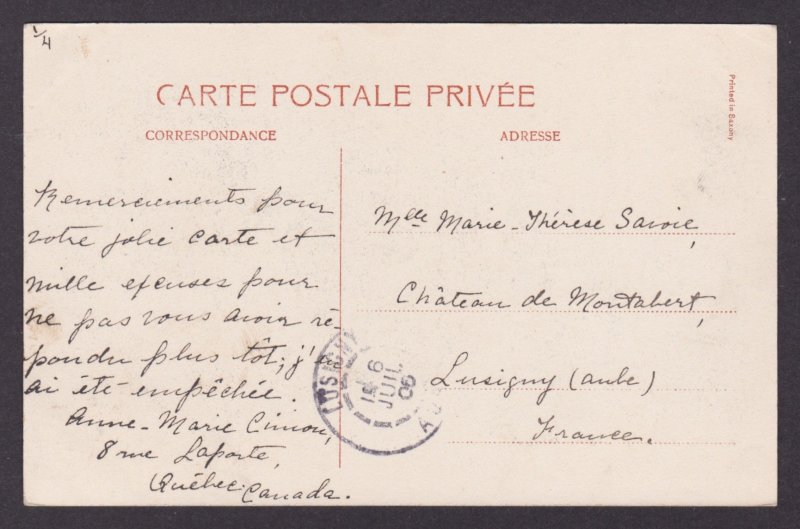 1/4
CARTE POSTALE PRIVÉE
Printed in Saxony
CORRESPONDANCE
ADRESSE
Remerciements pour
votre jolie carte et
mille excuses pour
ne pas vous avoir ré-
pondu plus tôt; j'en
ai été empêchée.
Anne-Marie Cimon,
8 rue Laporte,
Québec. Canada.
Mlle Marie-Thérèse Savoie,
Château de Montabert,
Lusigny (aube)
France.
LUSIGNY
6
JUIL
06